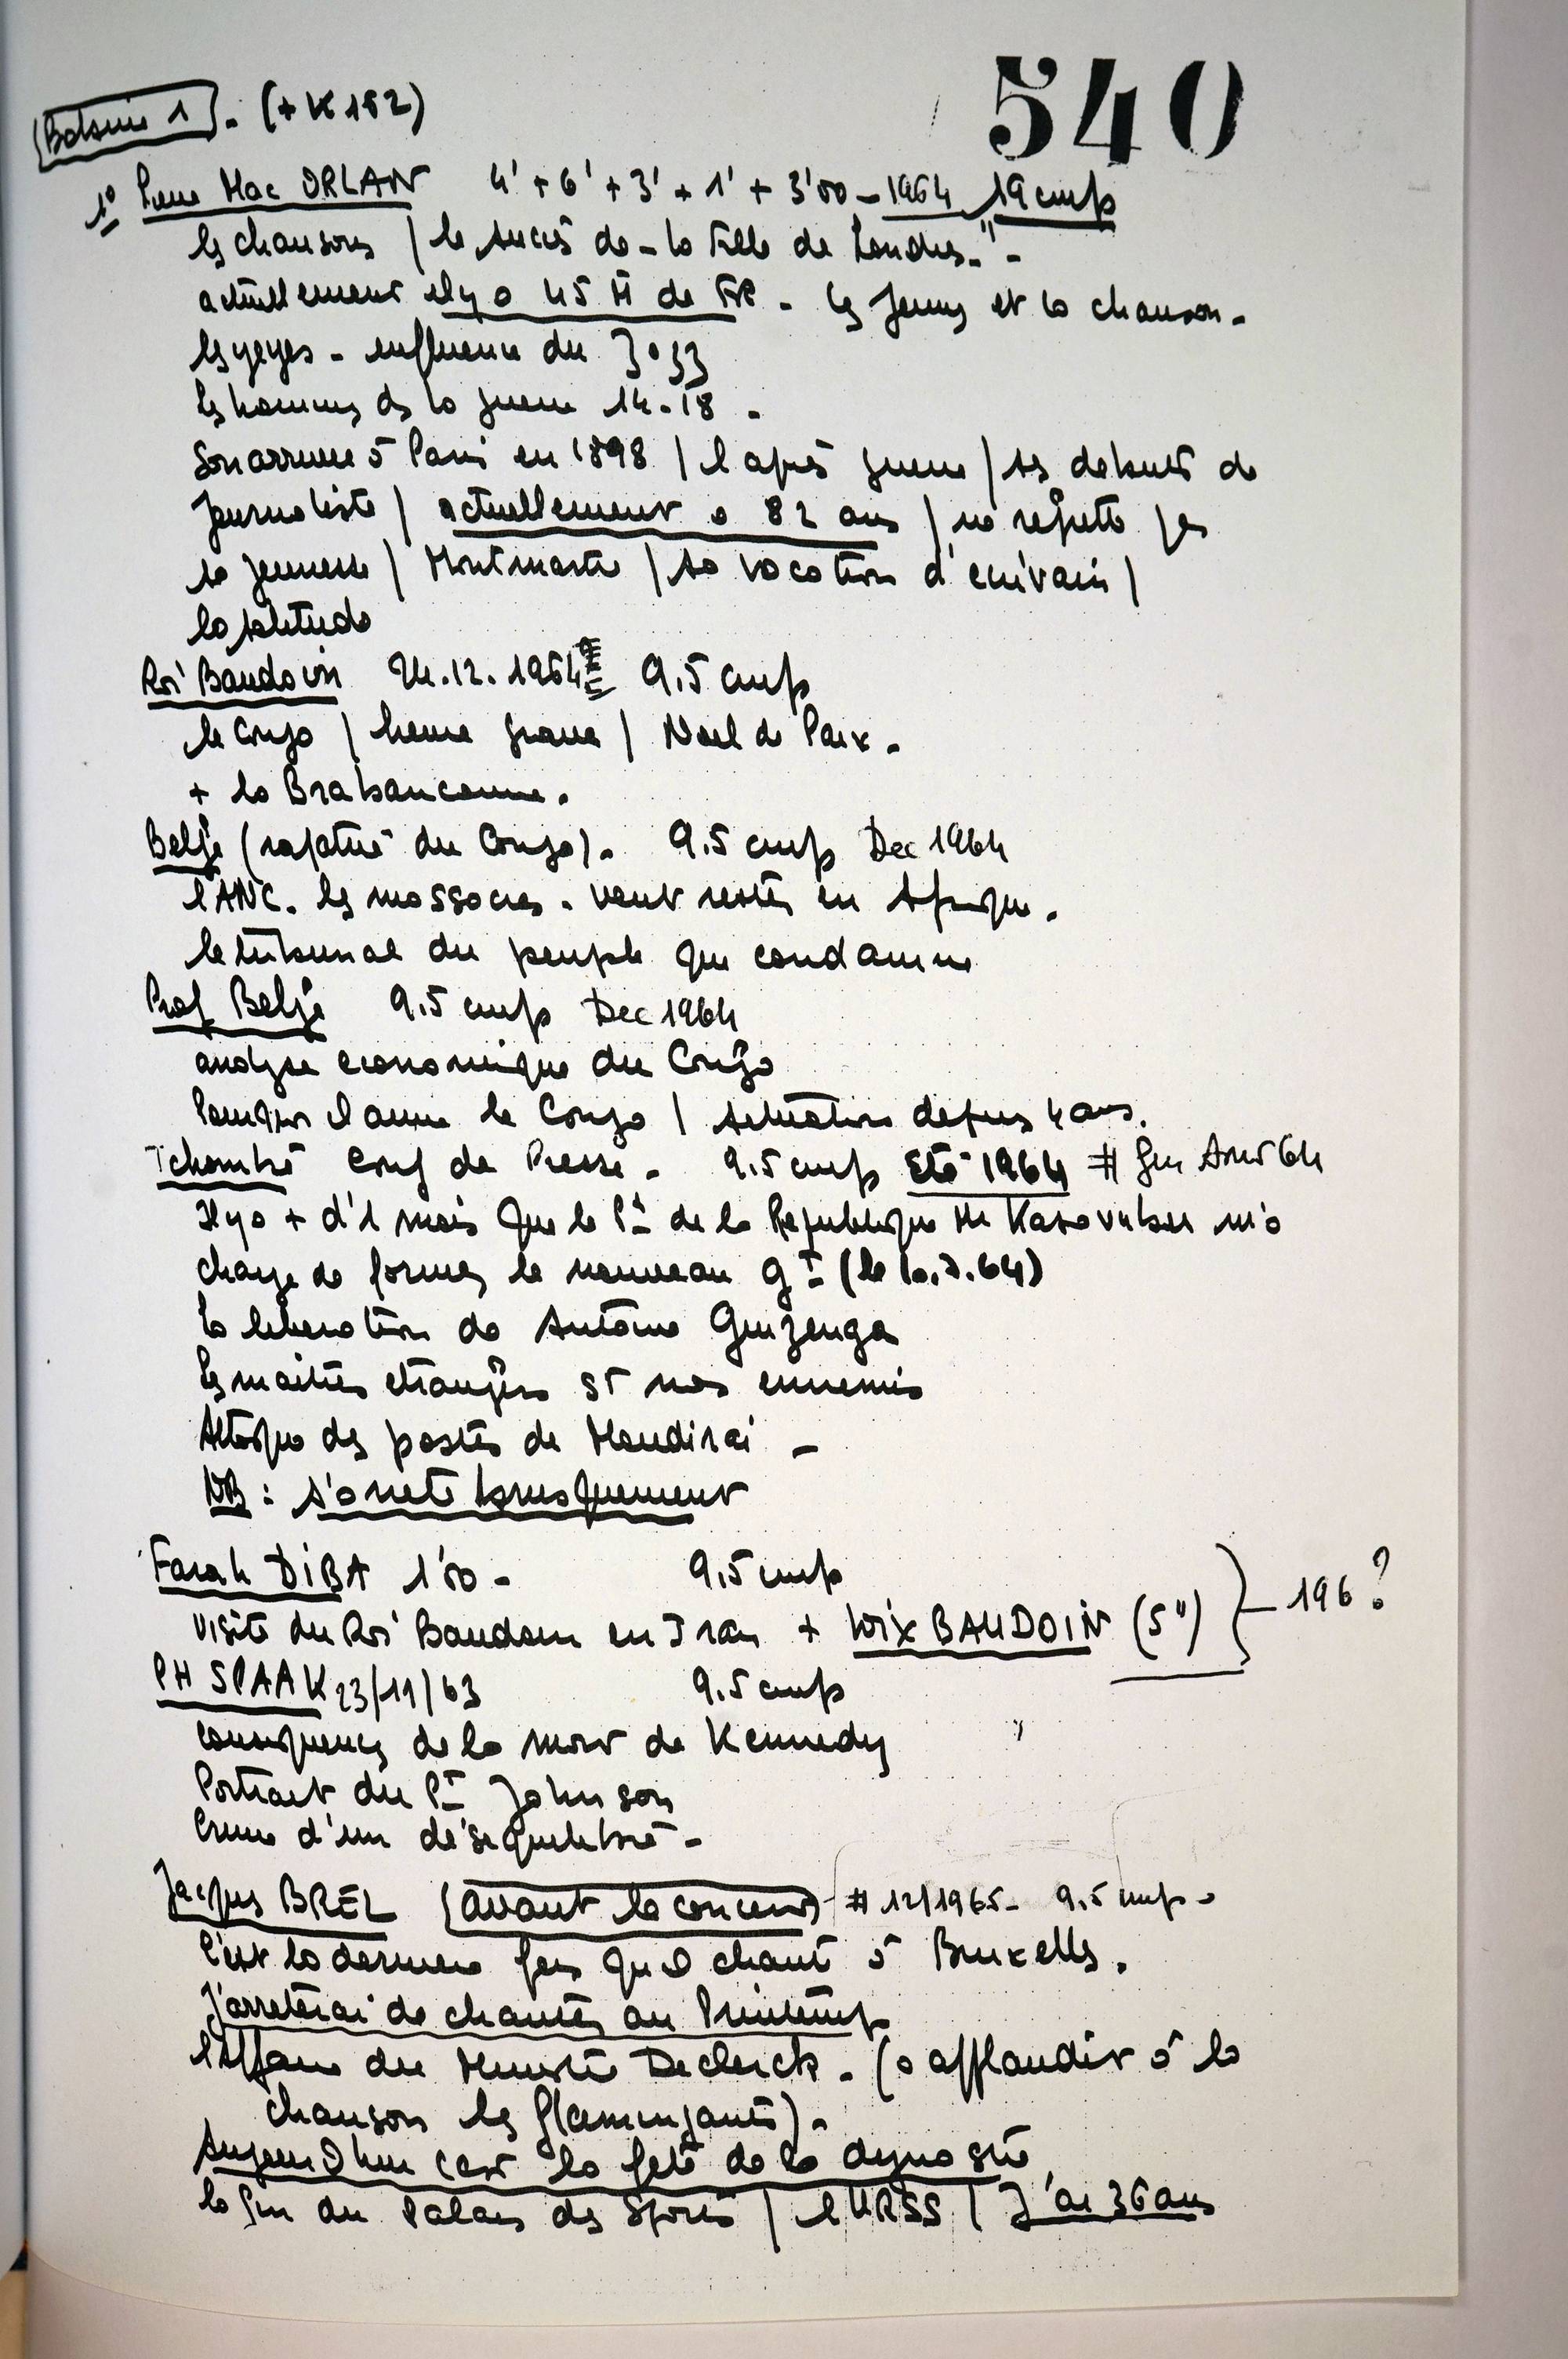 540
Bobine 1. (+ K 152)
1° Pierre Mac ORLAN 4' + 6' + 3' + 1' + 3'00 - 1964 19 cm/s
les chansons / le succès de - la fille de Londres." -
actuellement il y a 45 M de FR - les Jeunes et la chanson -
les yeyes - influence du
les hommes de la guerre 14-18 -
Son arrivée à Paris en 1898 / l'après guerre / ses debuts de
Journaliste / actuellement a 82 ans / ne regrette pas
sa jeunesse / Montmartre / sa vocation d'ecrivain /
la solitude
Roi Baudouin 24.12.1964 9.5 cm/s
le Congo / heure grave / Noel de Paix -
+ la Brabanconne.
Belge (rapatrié du Congo). 9.5 cm/s Dec 1964
l'ANC. les massacres. veut rester en Afrique.
le tribunal du peuple qui condamne
Prof Belge 9.5 cm/s Dec 1964
analyse economique du Congo
Pourquoi il aime le Congo / situation depuis 4 ans.
Tchombé Conf de Presse - 9.5 cm/s Eté 1964 # fin Aout 64
Il y a + d'1 mois que le Pt de la Republique Mr Kasavubu m'a
charge de former le nouveau gt (le 10.7.64)
la liberation de Antoine Guizenga
les maitres etrangers st nos ennemis
Attaque des postes de
NB : s'arrete brusquement
Farah DIBA 1'00 - 9.5 cm/s
visite du Roi Baudouin en Iran + voix BAUDOIN (5") } - 196?
PH SPAAK 23/11/63 9.5 cm/s
consequences de la mort de Kennedy
Portrait du Pt Johnson
Crime d'un déséquilibré -
Jacques BREL (avant le concert) # 12/1965 - 9.5 cm/s -
C'est la derniere fois qu'il chante à Bruxelles.
J'arreterai de chanter au Printemps
l'affaire du Ministre Declerck. (a applaudir à la
chanson les flamingants).
Aujourd'hui c'est la fete de la dynastie
la fin du Palais des Sports / l'URSS / J'ai 36 ans